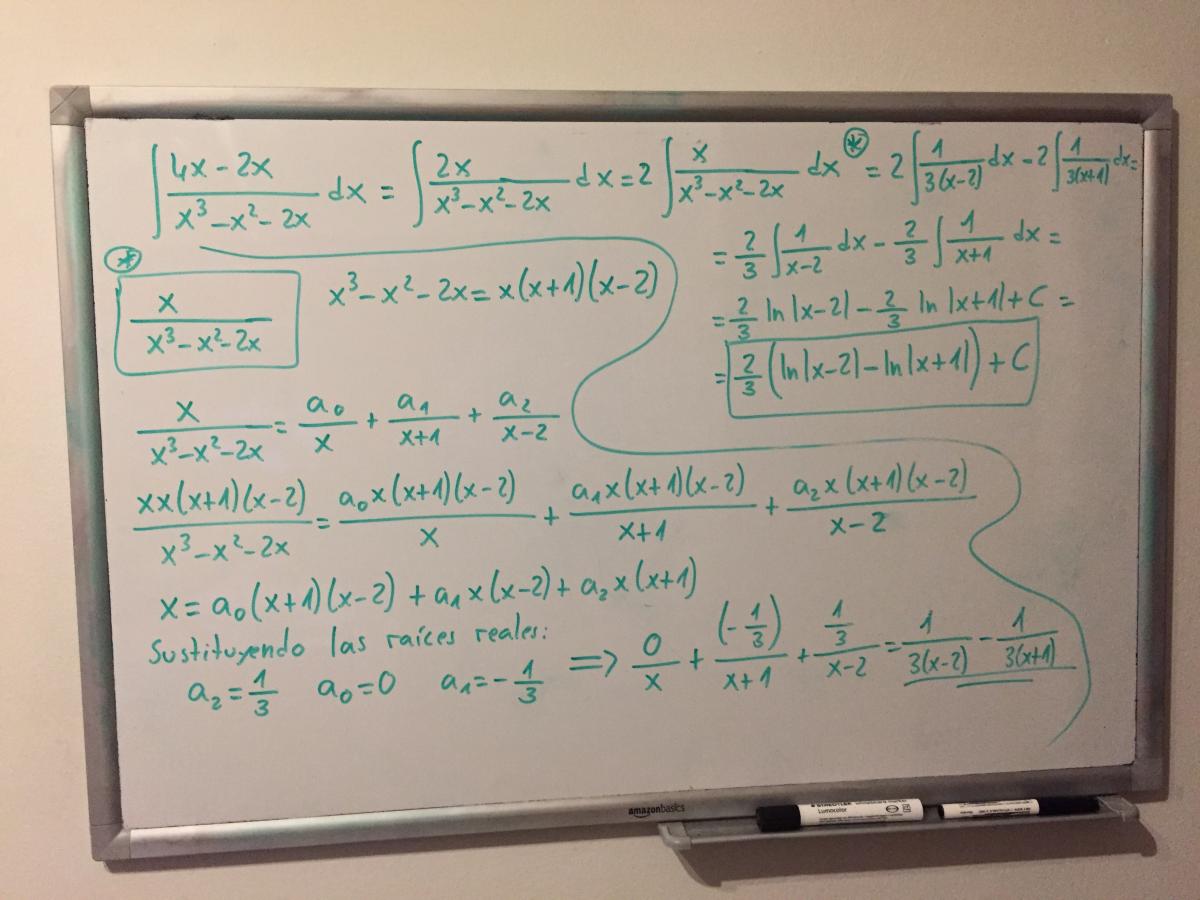 ∫ (4x − 2x)/(x³ − x² − 2x) dx = ∫ 2x/(x³ − x² − 2x) dx = 2 ∫ x/(x³ − x² − 2x) dx (*) = 2 ∫ 1/(3(x−2)) dx − 2 ∫ 1/(3(x+1)) dx =
= 2/3 ∫ 1/(x−2) dx − 2/3 ∫ 1/(x+1) dx =
= 2/3 ln|x−2| − 2/3 ln|x+1| + C =
= 2/3 (ln|x−2| − ln|x+1|) + C
(*)
x/(x³ − x² − 2x)
x³ − x² − 2x = x(x+1)(x−2)
x/(x³ − x² − 2x) = a₀/x + a₁/(x+1) + a₂/(x−2)
xx(x+1)(x−2)/(x³ − x² − 2x) = a₀x(x+1)(x−2)/x + a₁x(x+1)(x−2)/(x+1) + a₂x(x+1)(x−2)/(x−2)
x = a₀(x+1)(x−2) + a₁x(x−2) + a₂x(x+1)
Sustituyendo las raíces reales:
a₂ = 1/3 a₀ = 0 a₁ = −1/3 ⟹ 0/x + (−1/3)/(x+1) + (1/3)/(x−2) = 1/(3(x−2)) − 1/(3(x+1))
amazonbasics
STAEDTLER
Lumocolor